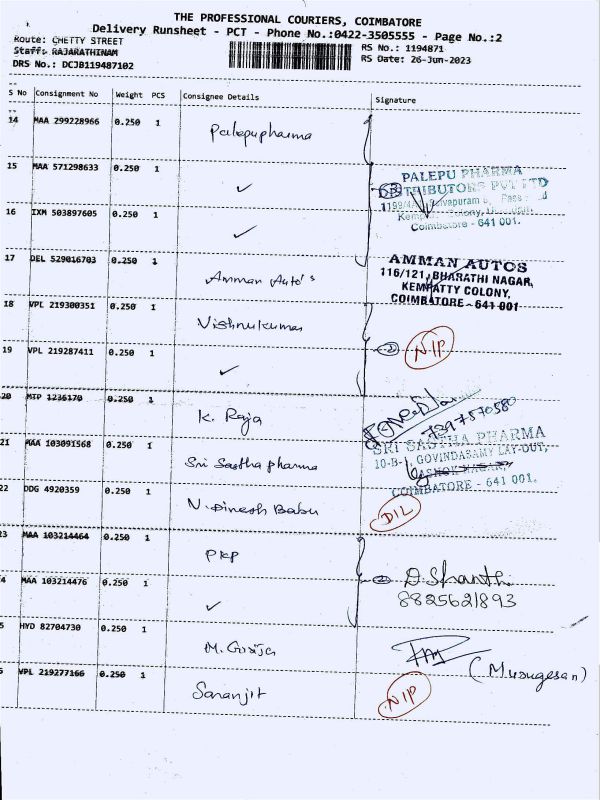 THE PROFESSIONAL COURIERS, COIMBATORE
Delivery Runsheet - PCT - Phone No.:0422-3505555 - Page No.:2
Route: CHETTY STREET
Staff: RAJARATHINAM
DRS No.: DCJB119487102
RS No.: 1194871
RS Date: 26-Jun-2023
S No Consignment No Weight PCS Consignee Details Signature
14 MAA 299228966 0.250 1 Palepupharma
15 MAA 571298633 0.250 1 ✓
PALEPU PHARMA
TRIBUTORS PVT LTD
Coimbatore - 641 001.
16 IXM 503897605 0.250 1 ✓
17 DEL 529016703 0.250 1 Amman Auto's
AMMAN AUTOS
116/121, BHARATHI NAGAR,
KEMPATTY COLONY,
COIMBATORE - 641 001
18 VPL 219300351 0.250 1 Vishnukumar
19 VPL 219287411 0.250 1 ✓
② NIP
20 MTP 1236170 0.250 1 K. Raja
7397570580
21 MAA 103091568 0.250 1 Sri Sastha pharma
SRI SASTHA PHARMA
10-B-1, GOVINDASAMY LAY-OUT,
COIMBATORE - 641 001.
22 DDG 4920359 0.250 1 N. Dinesh Babu
D/L
3 MAA 103214464 0.250 1 PKP
4 MAA 103214476 0.250 1 ✓
② D. Shanthi
8825621893
5 HYD 82704730 0.250 1 M. Girija
(Murugesan)
VPL 219277166 0.250 1 Saranjit
NIP